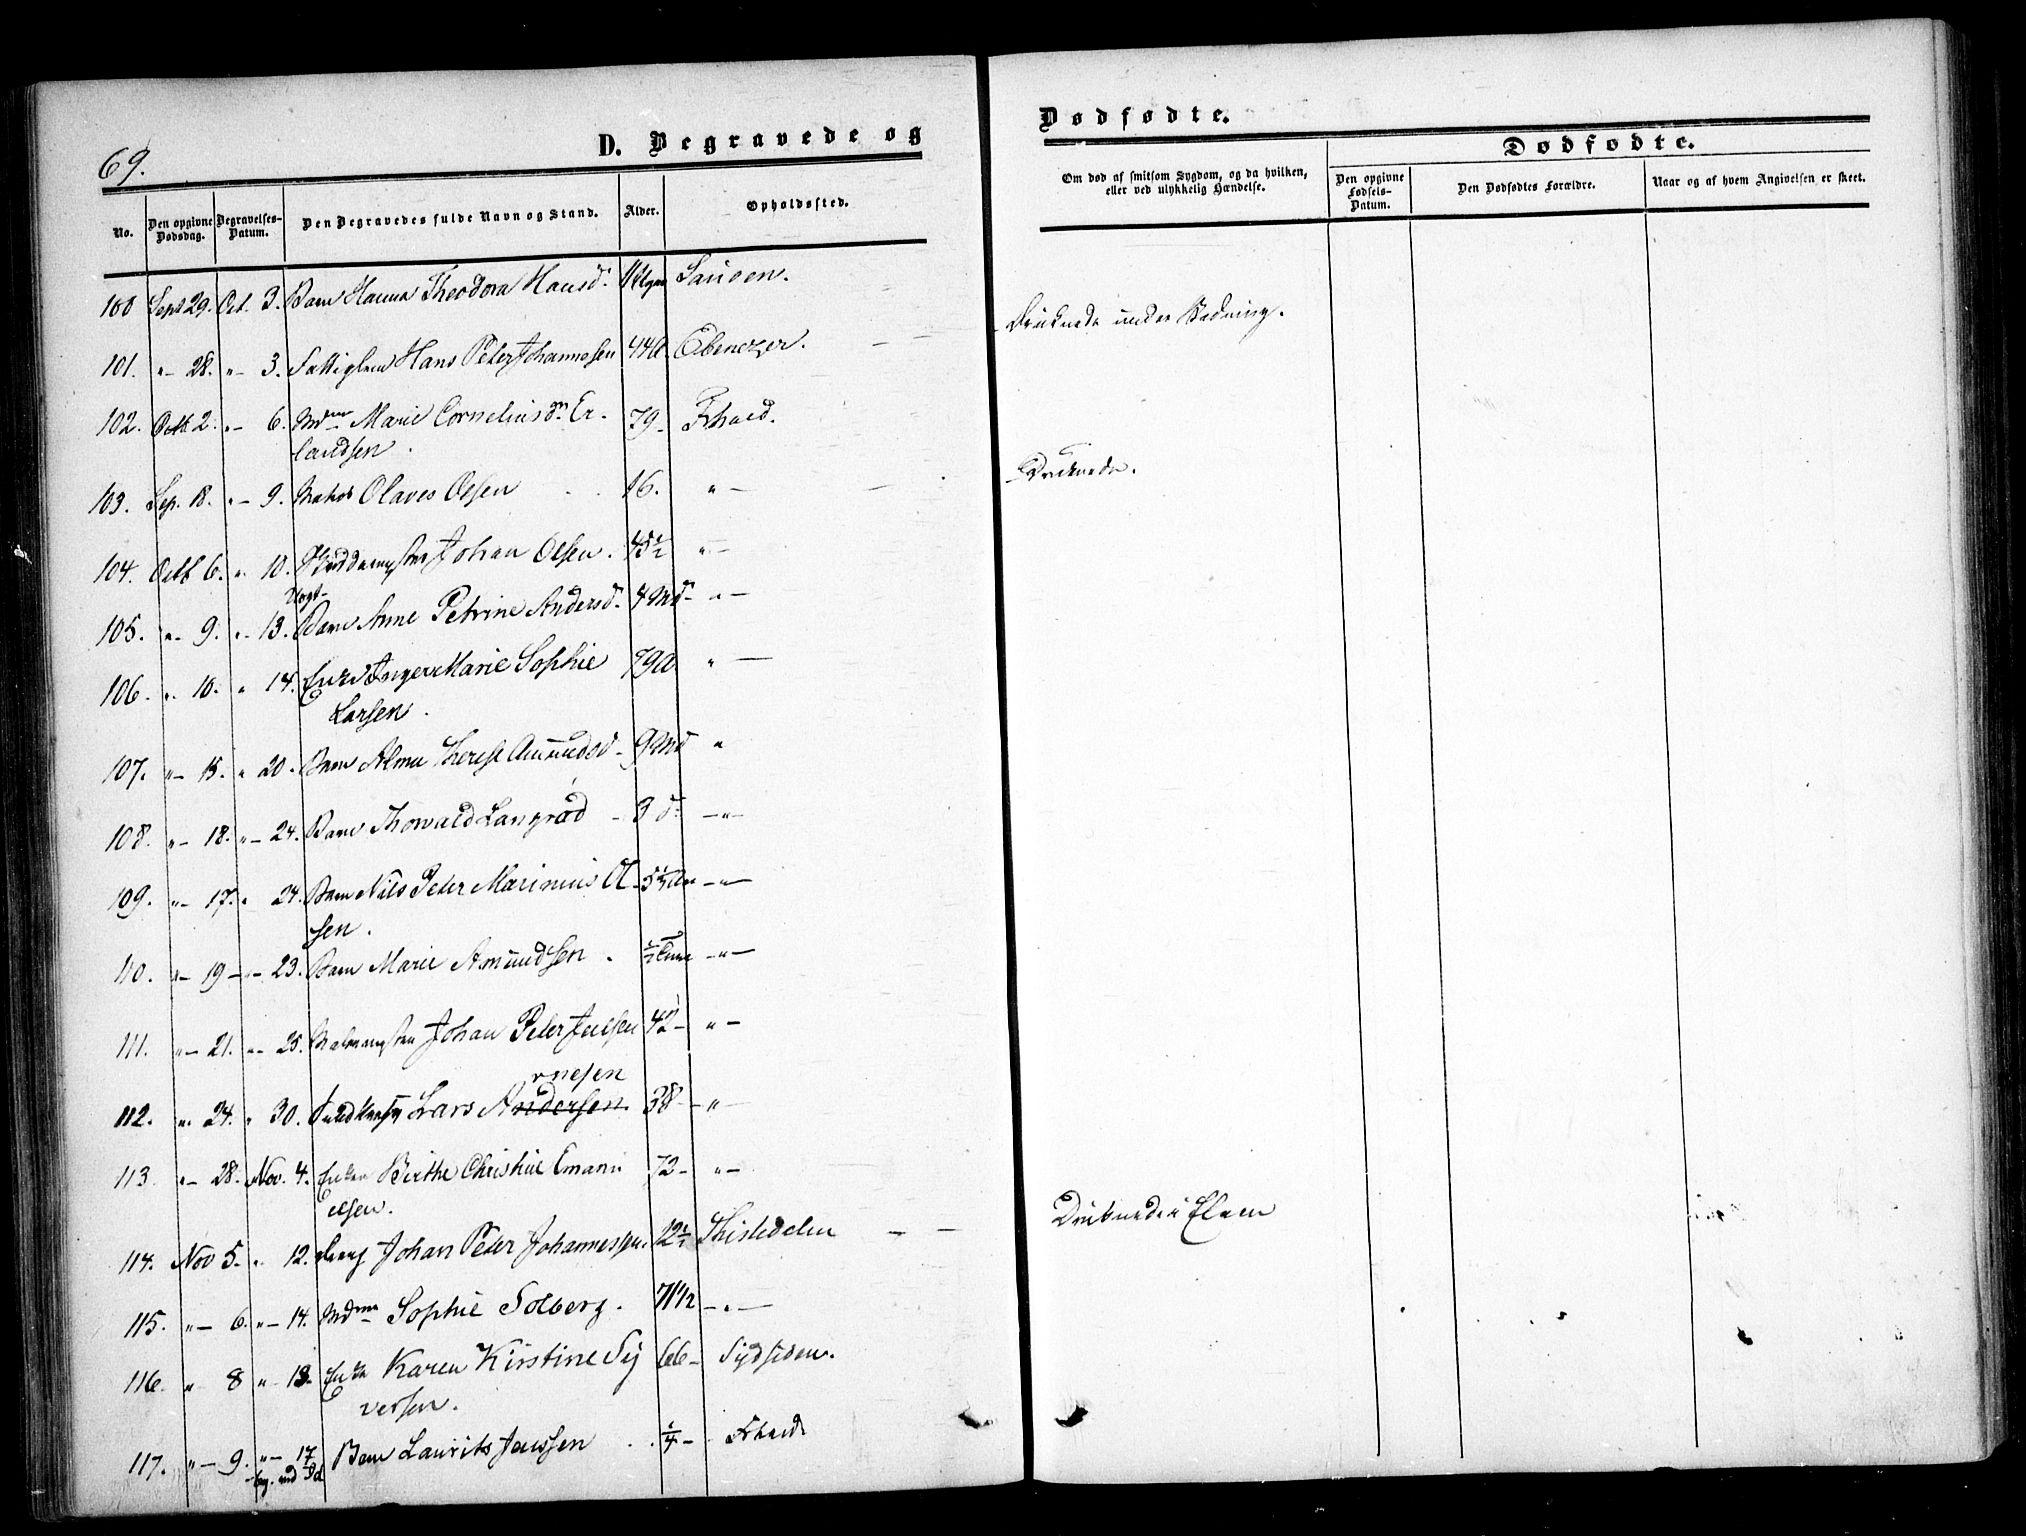 69.
D. Begravede og
No.
Den opgivne Dødsdag.
Begravelses-Datum.
Den Begravedes fulde Navn og Stand.
Alder.
Opholdssted.
100 Sept 29. Oct. 3. Barn Hanna Theodora Hansd.
101. " 28. " 3. Hans Peter Johannesen 44 A Ebenezer.
102. Octb 2. " 6. Mdm Marie Cornelius dr. Er- 79 - Frhald.
landsen.
103. Sep. 18. " 9. Matros Olaves Olsen 16. " —
104. Octb 6. " 10. Johan Olsen. 45 ½ " —
105. " 9. " 13. Barn Anne Petrine Andersd. 4 Md " —
106. " 10. " 14. Enke Inger Marie Sophie 79 A " —
Larsen.
107. " 15. " 20. Barn Alma Therese Amundsd - 9 Md "
108. " 18. " 24. Barn Thorvald Langrød - 3 d - " -
109. " 17. " 24. Barn Nils Peter Marinius Ol- 5 ½ - " —
sen.
110. " 19 " 23. Barn Marie Amundsen . - " —
111. " 21. " 25. Johan Peter Julsen 42 - " —
rnesen
112. " 24. " 30. Lars Andersen. 38 - " —
113. " 28. Nov. 4. Enken Birthe Christine Emanu 72 - " —
elsen.
114. Nov 5. " 12. Dreng Johan Peter Johannessen. 12 ½ Thistedalen
115. " 6. " 14. Mdme Sophie Solberg. 71 1/2 - " —
116. " 8 " 13. Enke Karen Kirstine Sy 66 - Sydsiden.
versen.
117. " 9. " 17 Barn Laurits Jenssen . . ¼ - Frhald
Dødfødte.
Om død af smitsom Sygdom, og da hvilken,
eller ved ulykkelig Hændelse.
Dødfødte.
Den opgivne Fødsels-Datum.
Den Dødfødtes Forældre.
Naar og af hvem Angivelsen er skeet.
Druknede under Badning.
Druknede.
Druknede i Elven